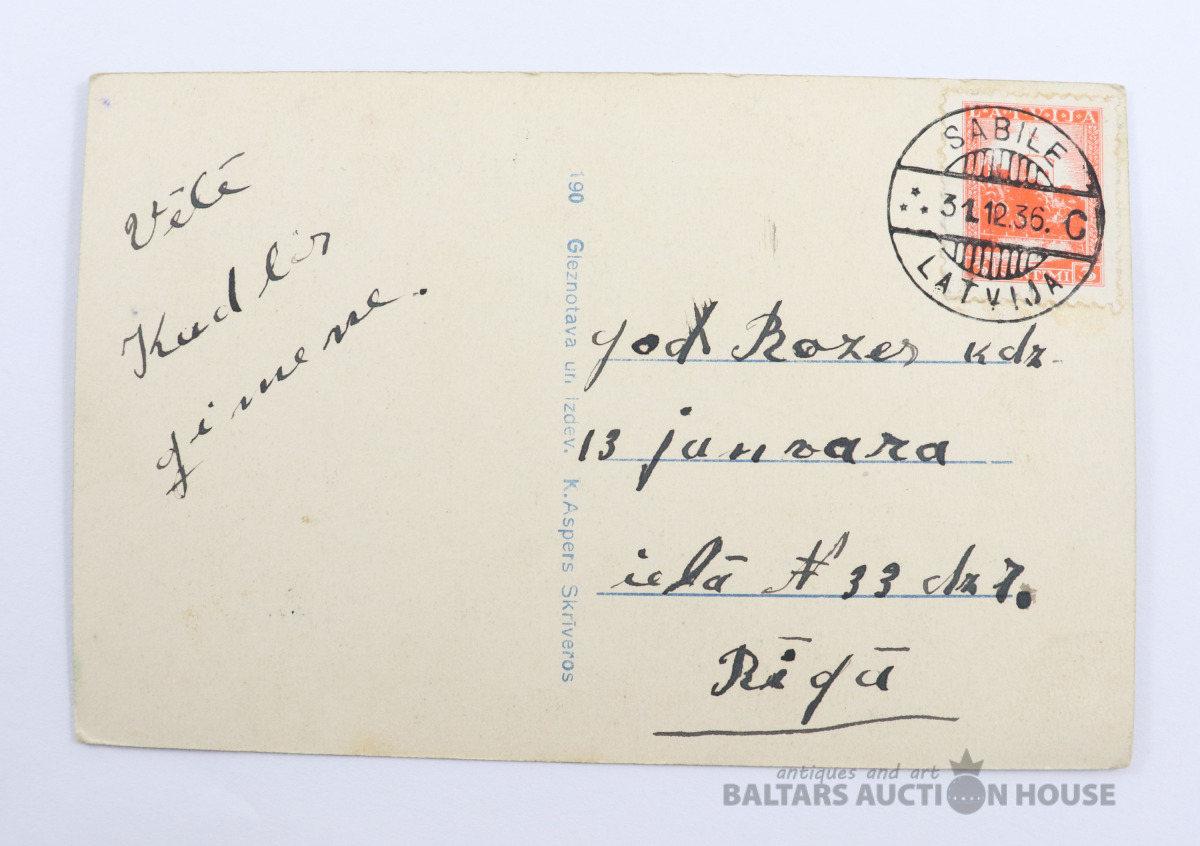 Vēlē
Kudlör
ģimene.
190 Gleznotava un izdev. K.Aspers Skrīveros
LATVIJA
SABILE
31.12.36. C
LATVIJA
god Rozes kdz.
13 janvara
ielā N 33 dz 7.
Rīgā
antiques and art
BALTARS AUCTION HOUSE